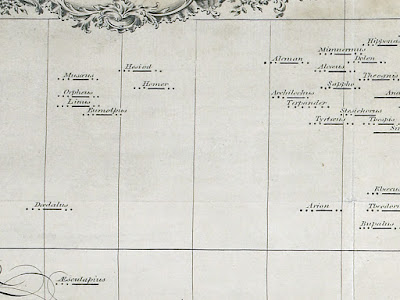 Hippona
Mimnermus
Alcman Solon
Hesiod Alcæus
Musæus Theognis
Homer Sappho
Orpheus Archilochus
Linus Terpander
Eumolpus Stesichorus
Tyrtæus Thespis
Dædalus Arion Theodoru
Bupalus
Æsculapius